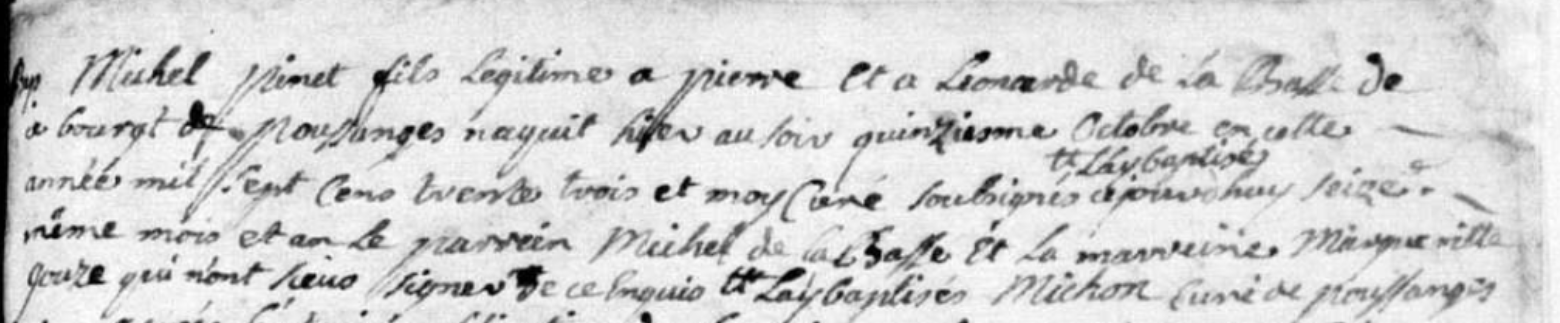 Bap Michel pinet fils Legitime a pierre Et a Leonarde de La Chasse de
a bourgt de poussanges naquit hier au soir quinziesme Octobre en cette
tt Lay baptisé
année mil sept Cens trente trois et moy Curé soubsignés cejourdhuy seize
même mois et an Le parrein Michel de la Chasse Et La marreine Margueritte
gouze qui n'ont sceus signer de ce Enquis tt Lay baptisés Michon Curé de poussanges